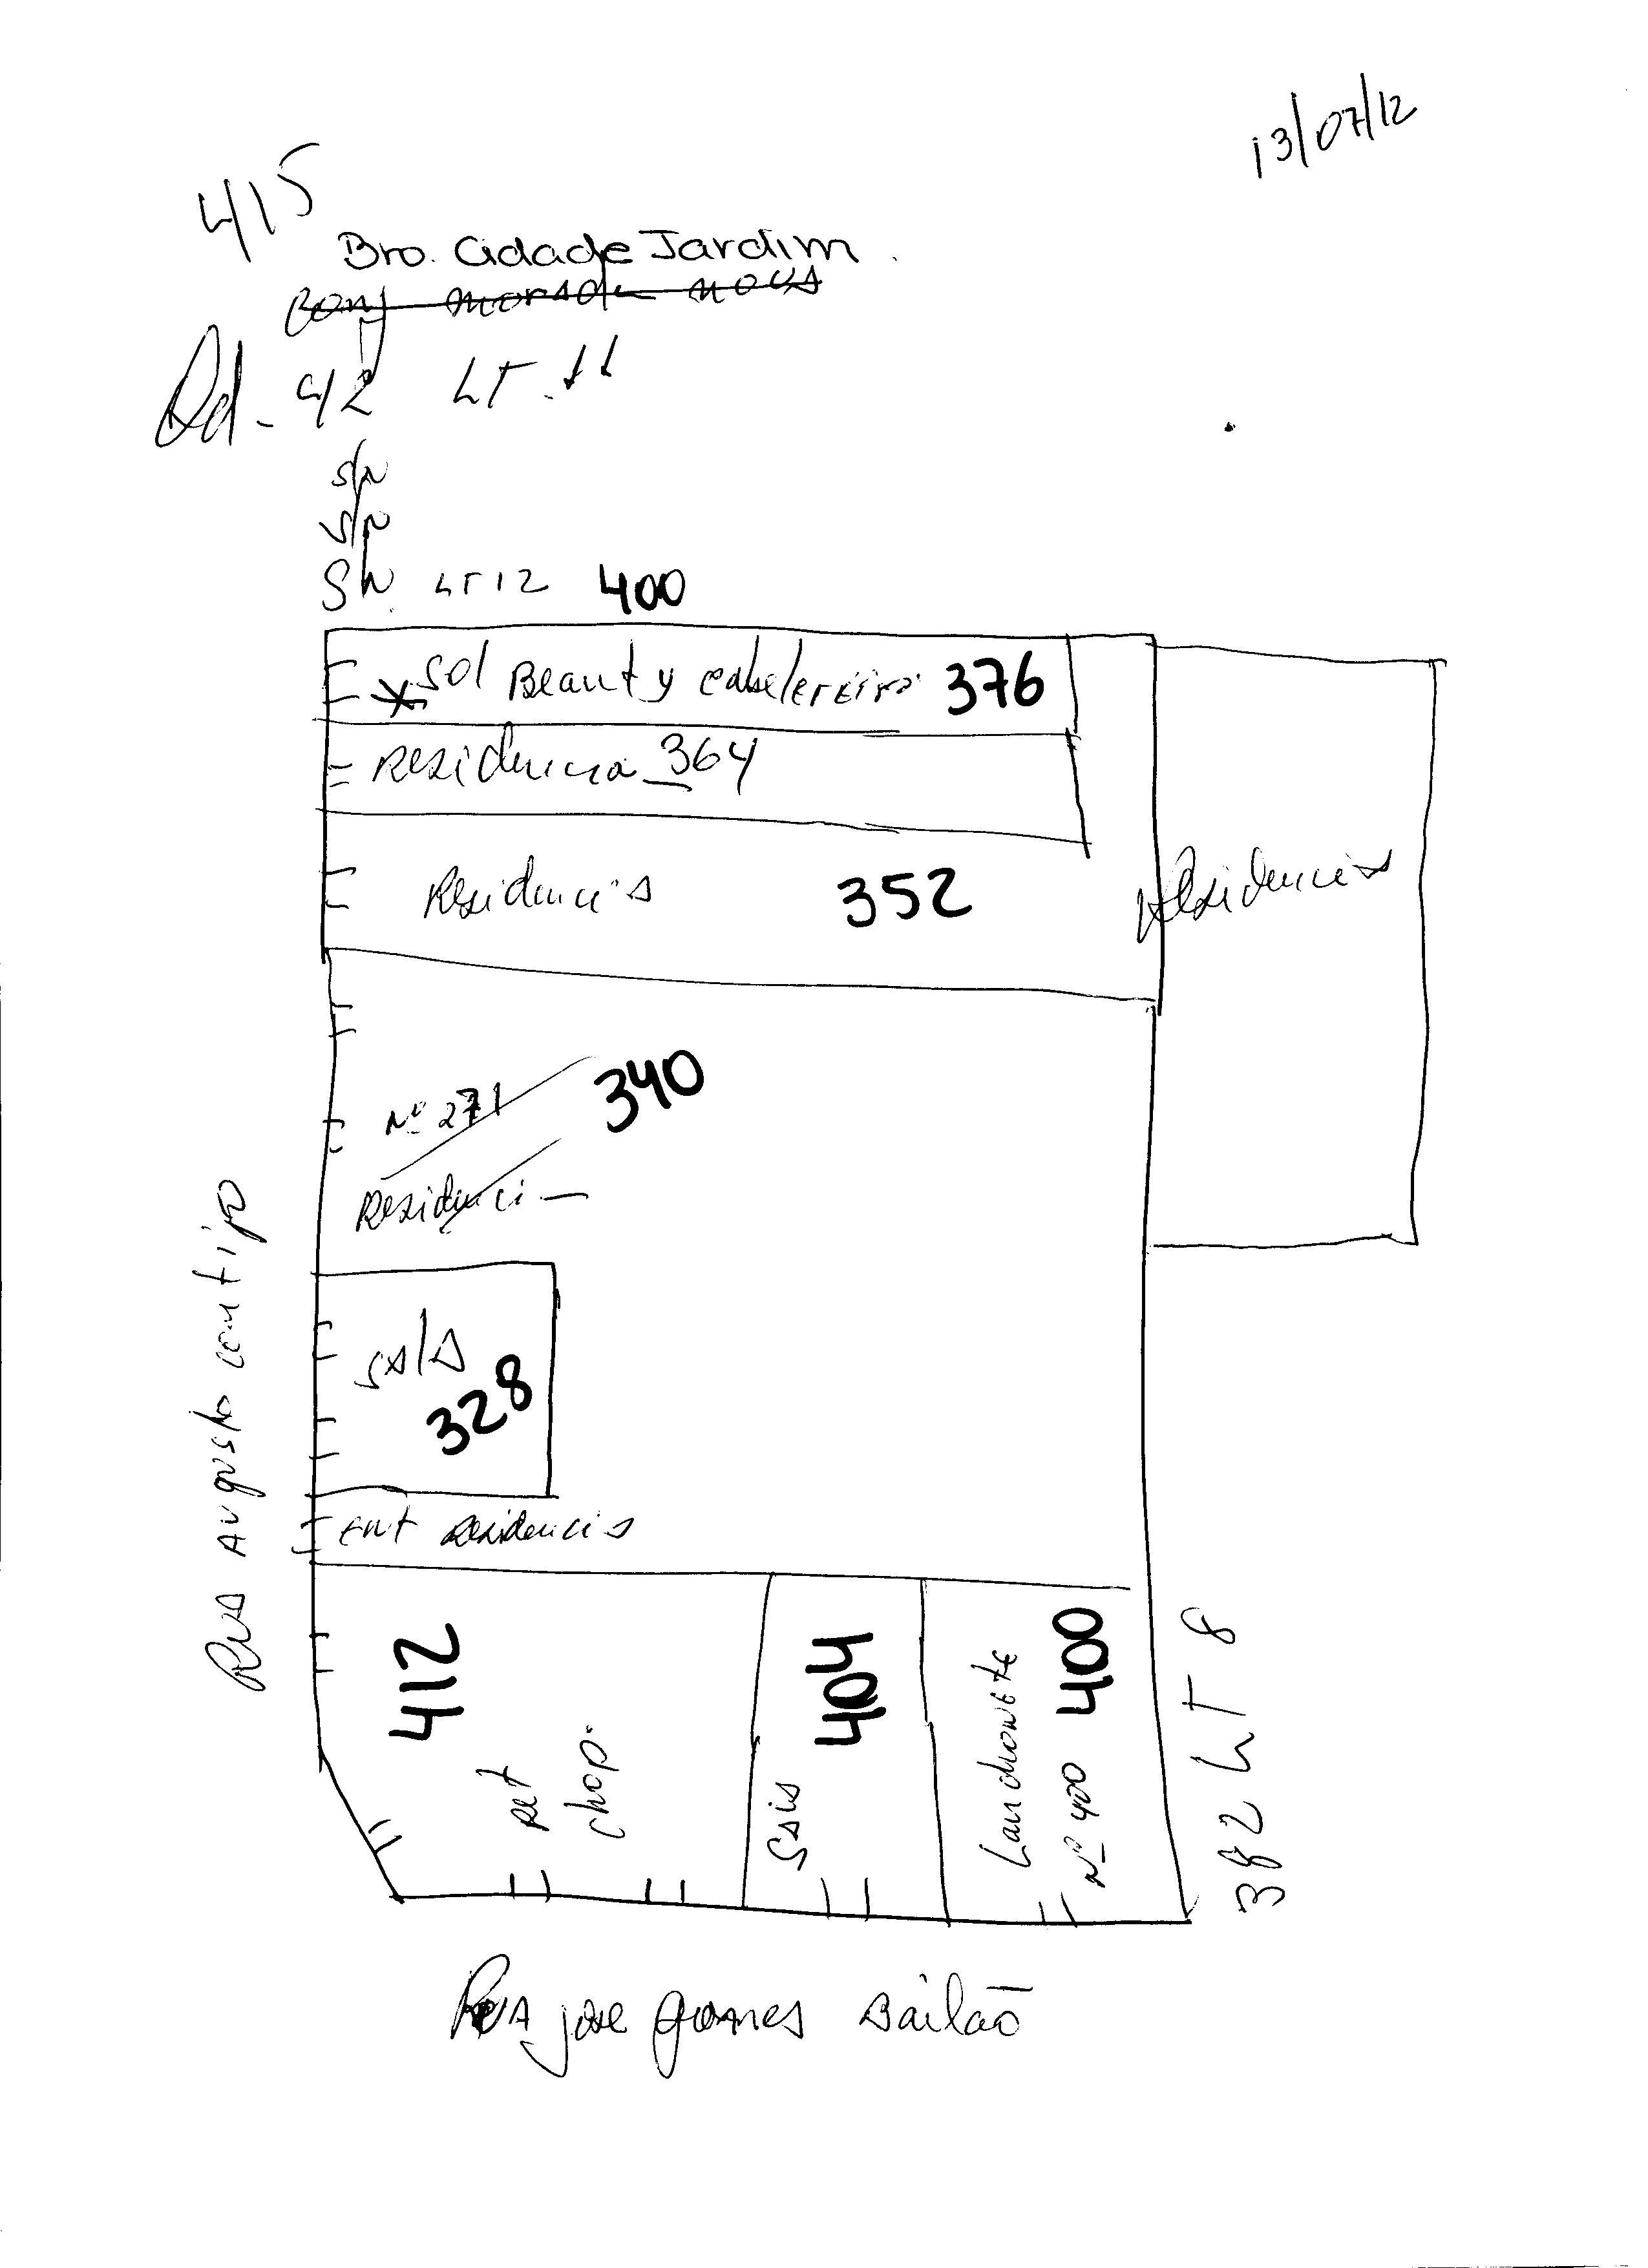 13/07/12
415
Bro. Cidade Jardim.
Conj morada nova
Qd - 42 LT. 11
S/N
S/N
S/N LT 12 400
Sol Beauty cabelereiro 376
Residencia 364
Residencia 352
Residencia
Nº 271 340
Residenci
Sala
328
Rua Augusto contijo
Ent Residencia
412
Pet
Chop.
404
Sala
Lanchonete
Nº 400 400
382 LT 8
Rua jose gomes Bailão